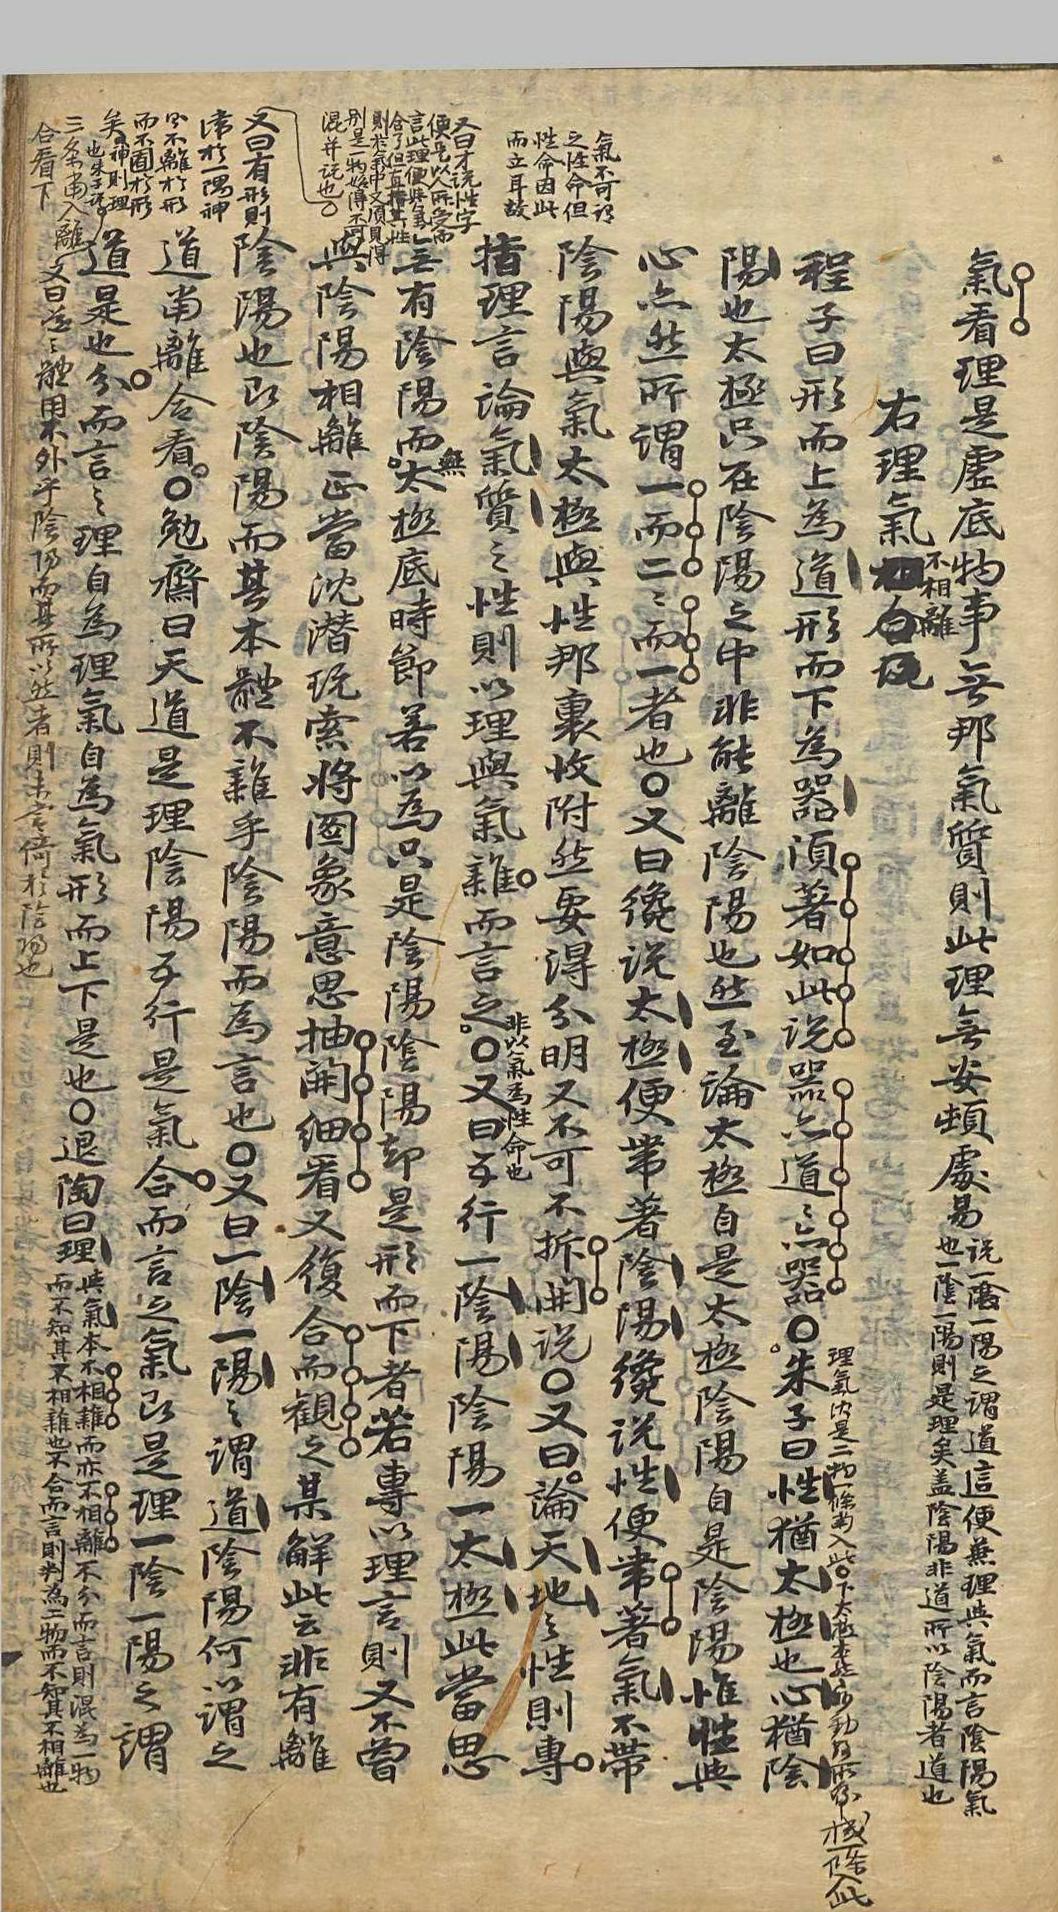 氣看理是虛底物事無那氣質則此理無安頓處易
說一陰一陽之謂道這便兼理與氣而言陰陽氣
也一陰一陽則是理矣盖陰陽非道所以陰陽者道也
右理氣不相離
程子曰形而上為道形而下為器須著如此說器亦道〻亦器○朱子曰性猶太極也心猶陰
陽也太極只在陰陽之中非能離陰陽也然至論太極自是太極陰陽自是陰陽惟性與
心亦然所謂一而二〻而一者也○又曰纔說太極便帶著陰陽纔說性便帶著氣不帶
陰陽與氣太極與性那裏收附然要得分明又不可不拆開說○又曰論天地〻性則專
指理言論氣質〻性則以理與氣雜而言之
非以氣為性命也
○又曰五行一陰陽陰陽一太極此當思
無有陰陽而無太極底時節若以為只是陰陽陰陽却是形而下者若專以理言則又不曾
與陰陽相離正當沈潛玩索將圖象意思抽開細看又復合而觀之某解此云非有離
陰陽也即陰陽而其本體不雜乎陰陽而為言也○又曰一陰一陽〻謂道陰陽何以謂之
道當離合看○勉齋曰天道是理陰陽五行是氣合而言之氣即是理一陰一陽之謂
道是也分而言〻理自為理氣自為氣形而上下是也○退陶曰理
與氣本不相雜而亦不相離不分而言則混為一物
而不知其不相雜也不合而言則判為二物而不知其不相離也
氣不可謂
之性命但
性命因此
而立耳故
又曰才說性字
便是以人所受而
言此理便與氣
合了但直指其性
則於氣中又須見得
別是一物始得不可
混并說也○
又曰有形則
滯於一隅神
則不離於形
而不囿於形
矣
又曰道〻體用不外乎陰陽而其所以然者則未嘗倚於陰陽也